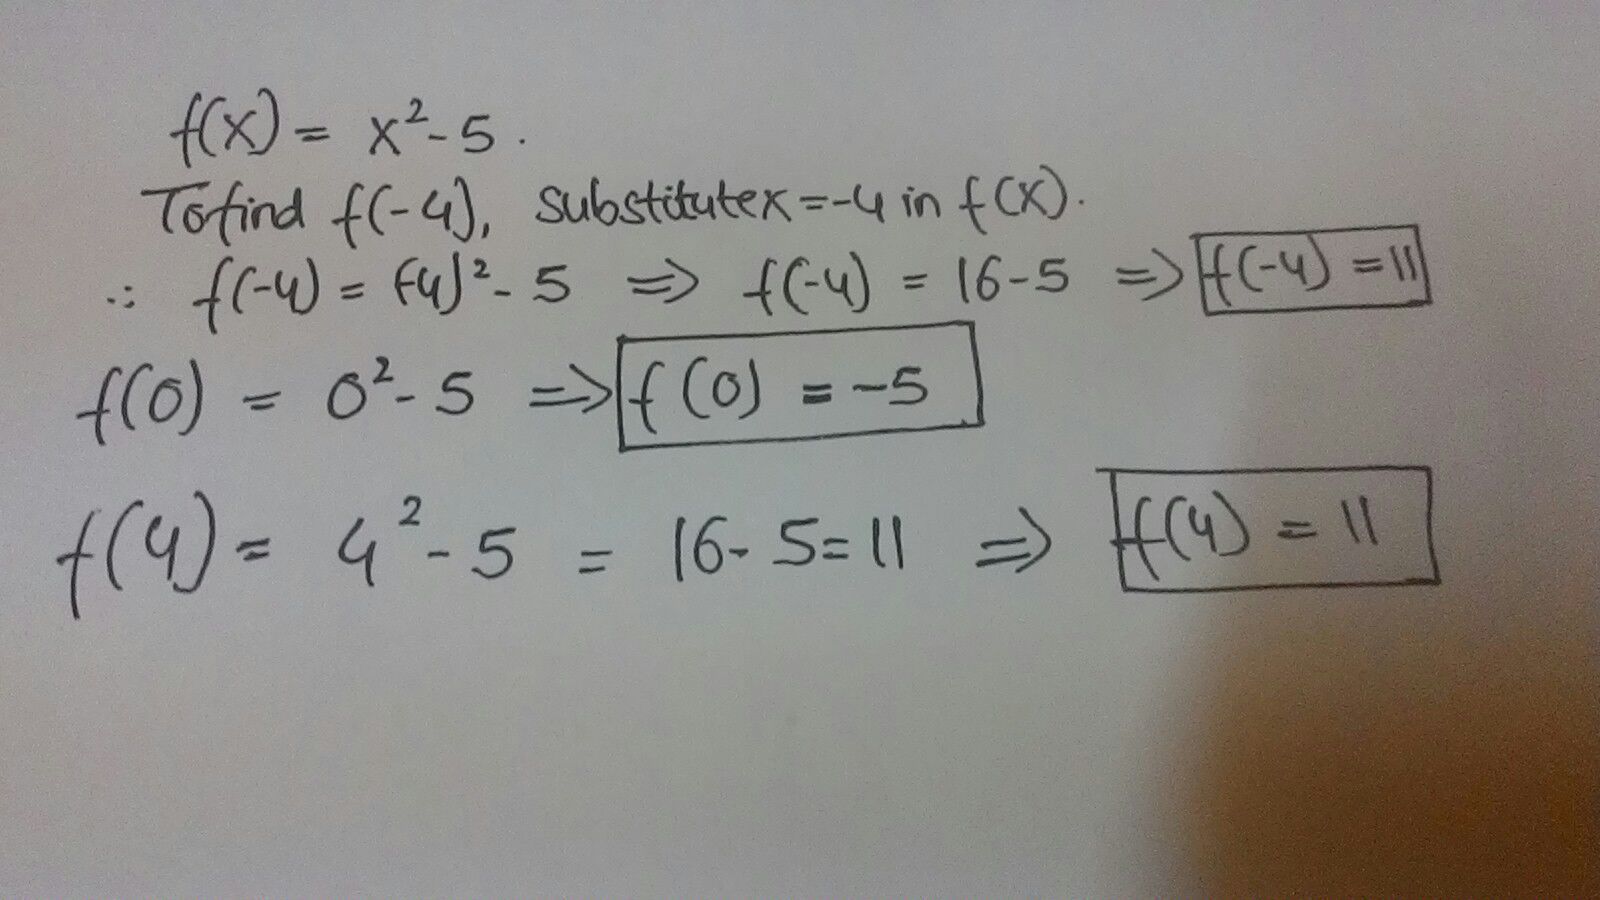 f(x) = x² - 5.
To find f(-4), substitute x = -4 in f(x).
∴ f(-4) = (-4)² - 5 ⇒ f(-4) = 16 - 5 ⇒ f(-4) = 11
f(0) = 0² - 5 ⇒ f(0) = -5
f(4) = 4² - 5 = 16 - 5 = 11 ⇒ f(4) = 11